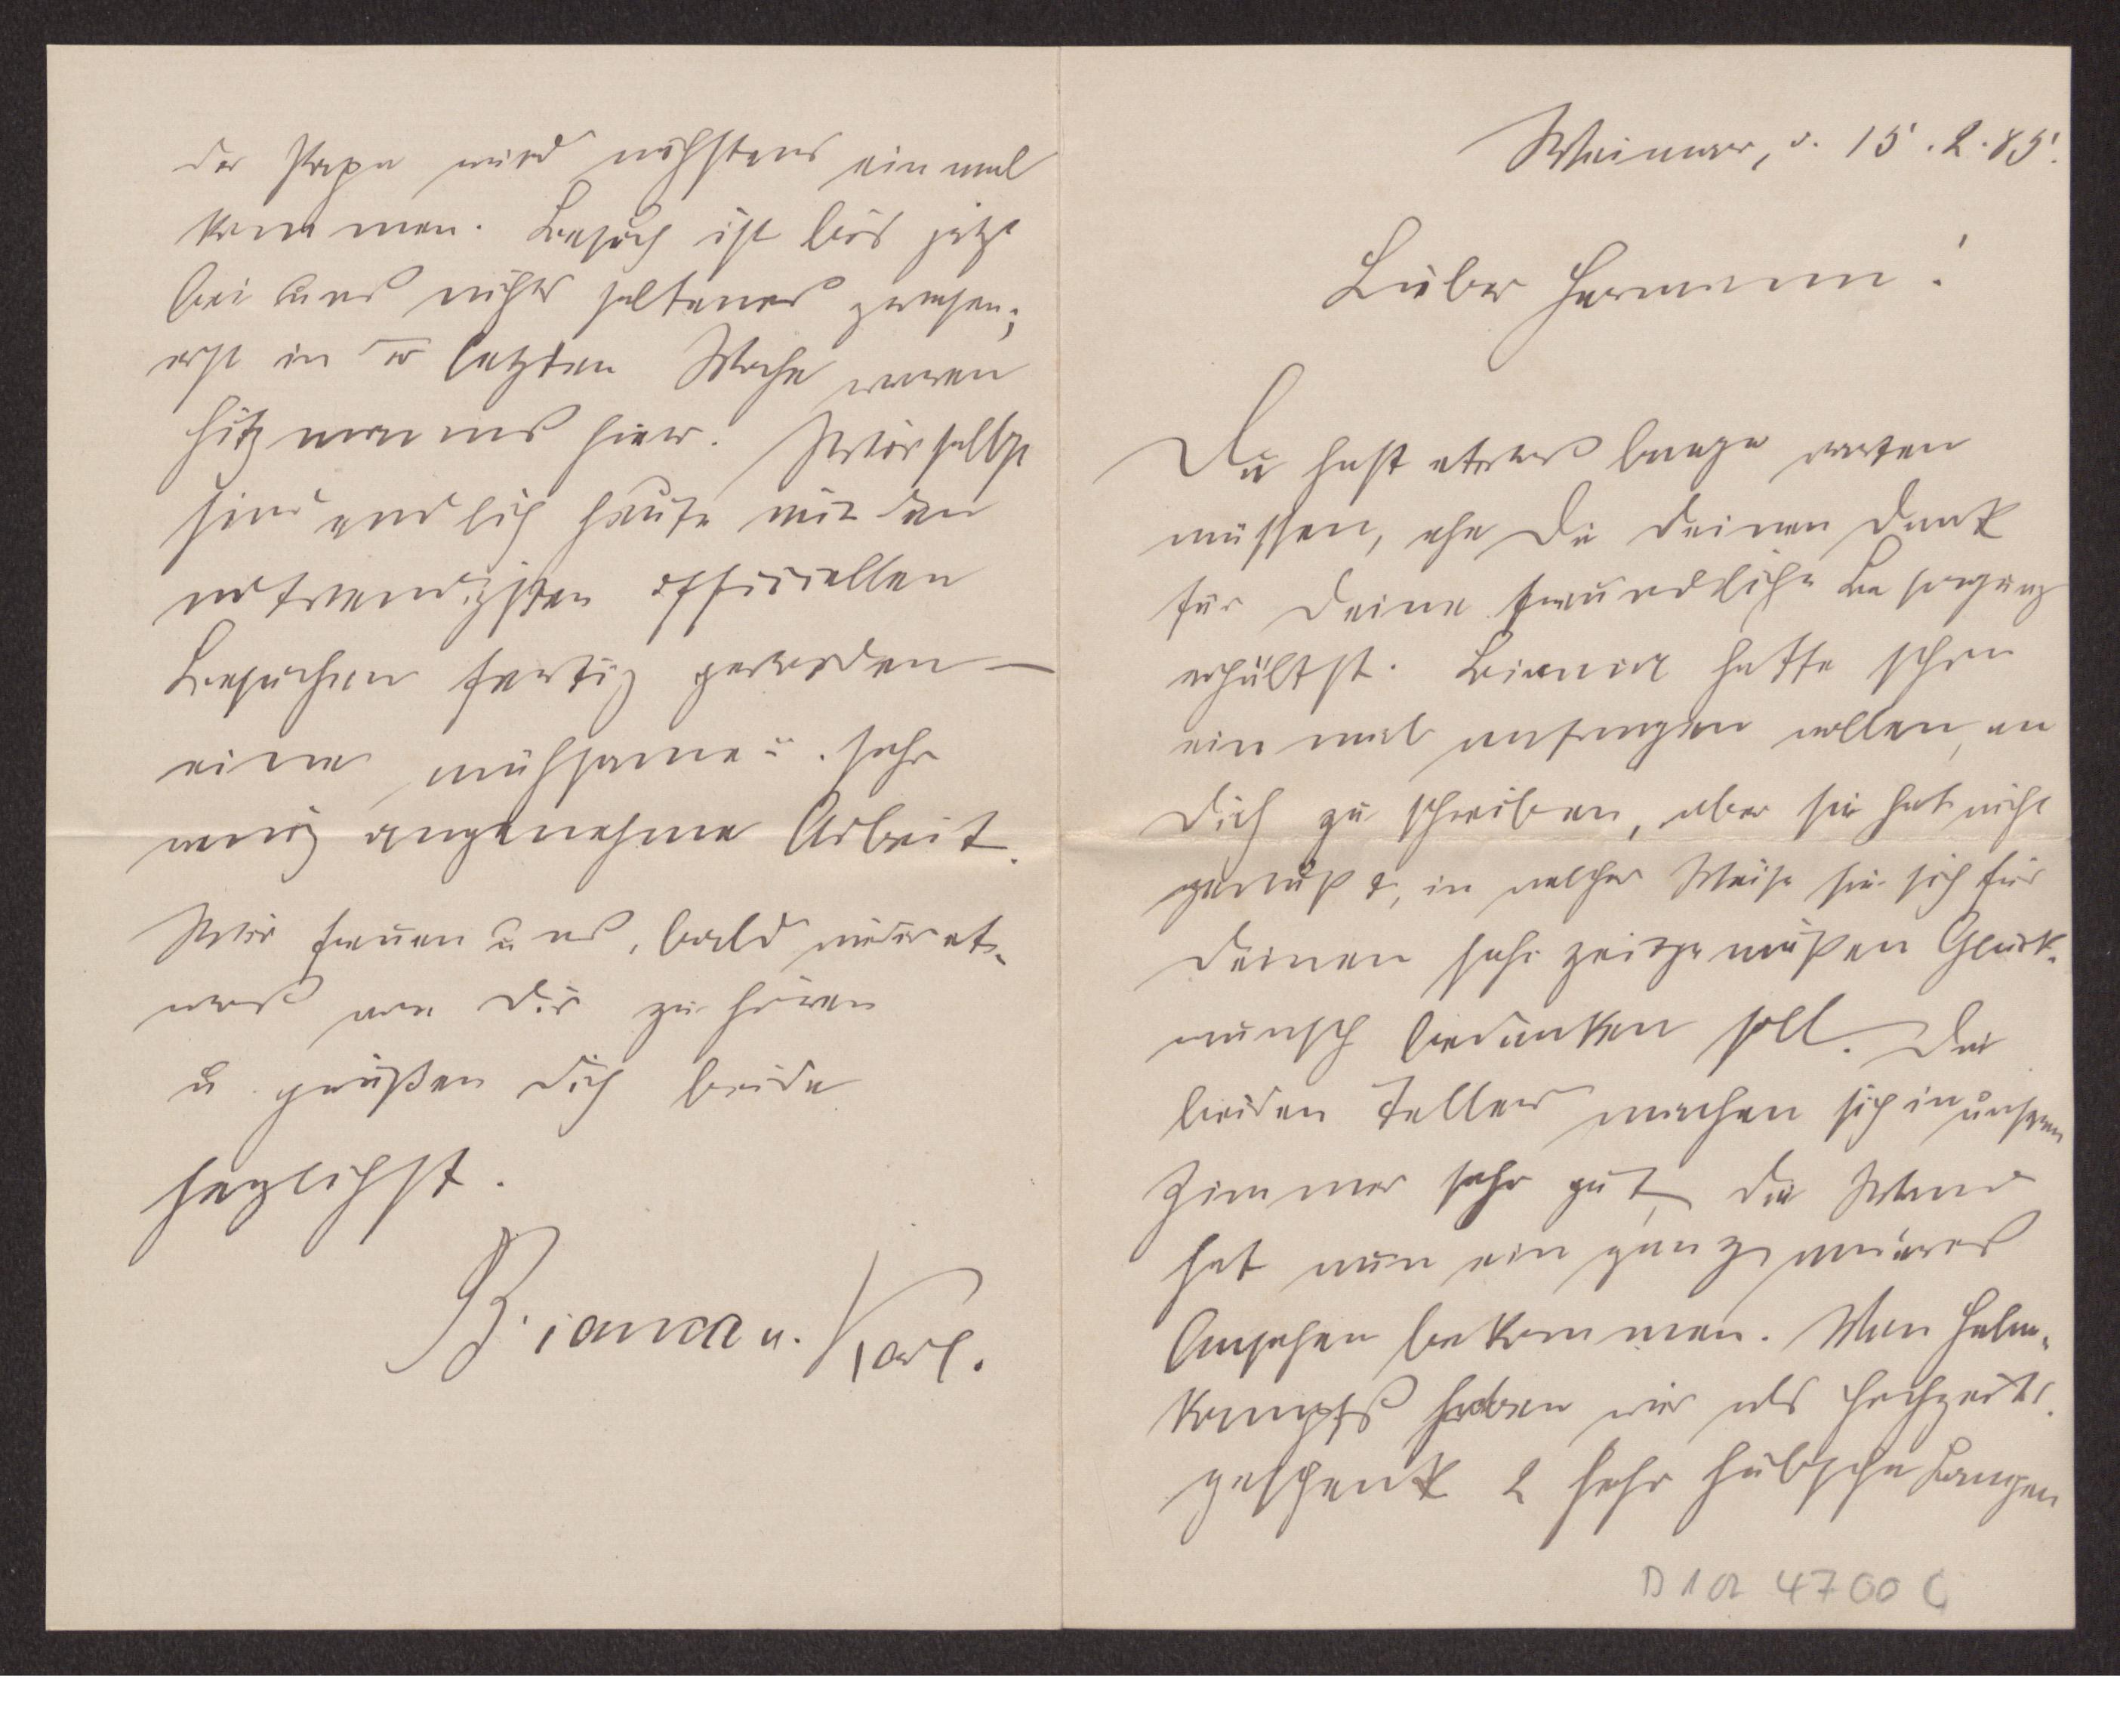 Weimar, d. 15.2.85.
Lieber Hermann!
Du hast etwas lange warten
müssen, ehe Du deinen Dank
für deine freundliche Besorgung
erhältst. Bianca hatte schon
einmal anfangen wollen, an
Dich zu schreiben, aber sie hat nicht
gewußt, in welcher Weise sie sich für
deinen sehr zeitgemäßen Glück-
wunsch bedanken soll. Die
beiden Teller machen sich in unserem
Zimmer sehr gut, die Wand
hat nun ein ganz anderes
Ansehen bekommen. Von Helm-
kampfs haben wir als Hochzeits-
geschenk 2 sehr hübsche Lampen
D 1a 4700 C
der Papa wird nächstens einmal
kommen. Besuch ist bis jetzt
bei uns nichts seltenes gewesen;
erst in der letzten Woche waren
Hitzmanns hier. Wir selbst
sind endlich heute mit den
notwendigsten officiellen
Besuchen fertig geworden —
eine mühsame u. sehr
wenig angenehme Arbeit.
Wir freuen uns, bald wieder et-
was von Dir zu hören
u. grüßen Dich beide
herzlichst.
Bianca u. Karl.